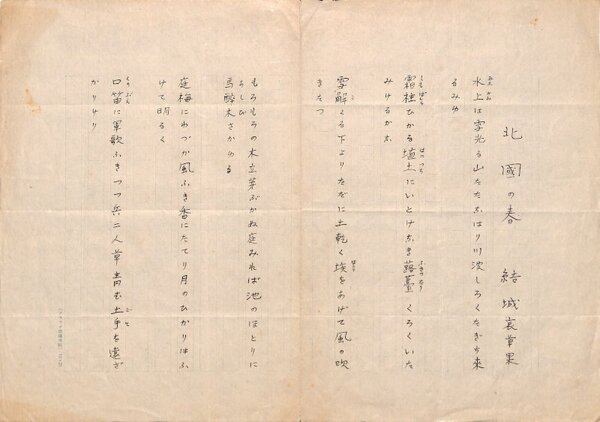 北國の春　結城哀草果
水上は雪光る山たたなはり川波しろくたぎち来
るみゆ
霜柱ひかる埴土にいとけなき蕗薹くろくいた
みけるかな
雪解くる下よりただに土乾く埃をあげて風の吹
きたつ
もろもろの木立芽ぶかね庭みれば池のほとりに
馬醉木さか
庭梅にわづか風ふき香にたてり月のひかりはふ
けて明るく
口笛に軍歌ふきつつ兵二人草青む土手を遠ざ
かりけり